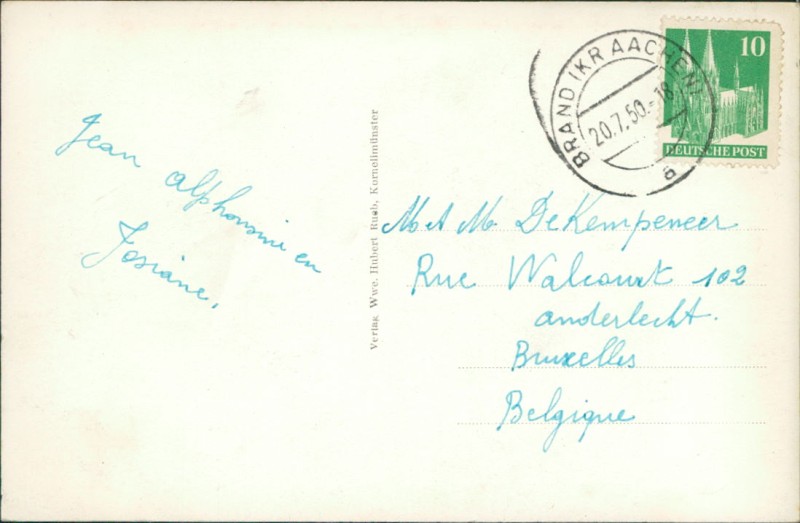 10
DEUTSCHE POST
BRAND (KR AACHEN)
20.7.50.-18
a
Jean Alphonsine en
Josiane,
Verlag Wwe. Hubert Rueb, Kornelimünster
M et M DeKempeneer
Rue Walcourt 102
anderlecht.
Bruxelles
Belgique